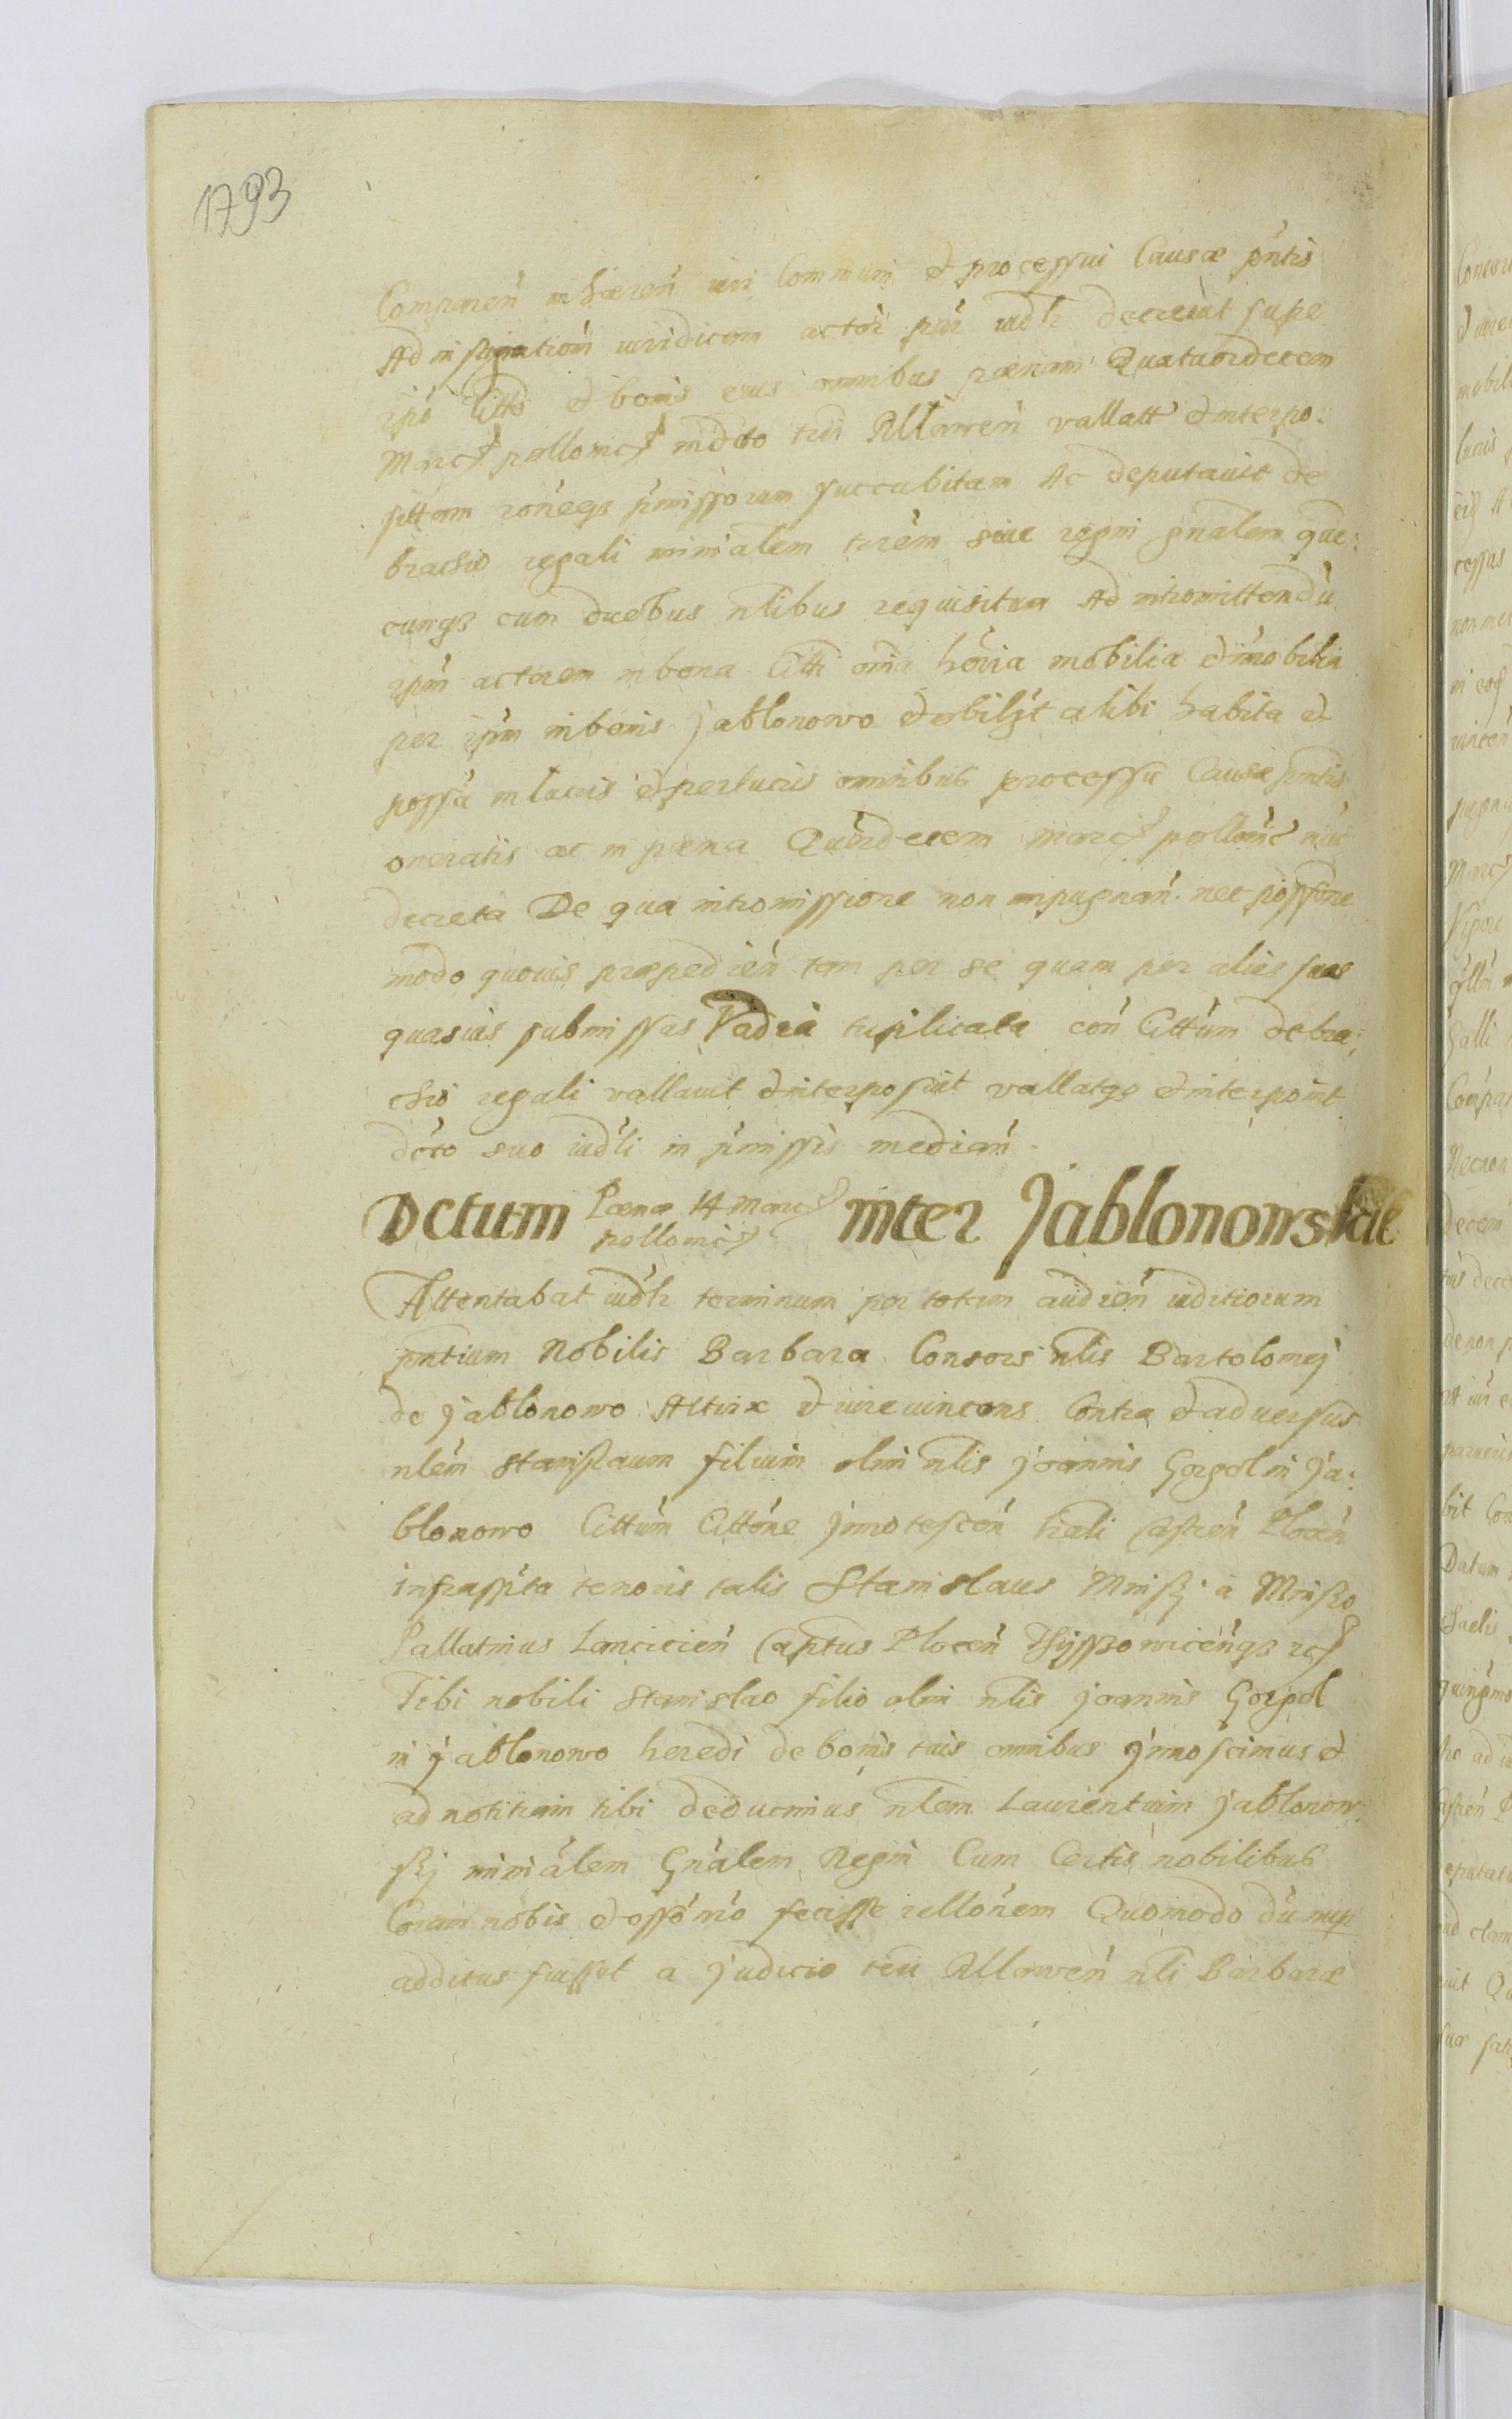 1793
Comparen inhæren iuri Communi et processui Causæ pntis
Ad insignationem iuridicam actoris pns iudr decrevit supe
ipo Citto et bonis eius omnibus pænam Quatuordecem
Marc pollonic indcto trri Rllawen vallatt et interpo:
sittam roneqз pmissorum succubitam Ac deputavit de
brachio regali minialem trrem siue regni gnalem que:
cunqз cum duobus nlibus requisitum Ad intromittendu
ipm actorem in bona Citti omia hæria mobilia et imobilia
per ipm in bonis Jablonowo et vbilizt alibi habita et
possa in lucris et perlucris omnibus processu Causæ pntis
oneratis ac in pæna Quardecem marc pollonic nuc
decreta De qua intromissione non inpugnan nec possone
modo quovis præpedien tam per se quam per alias suas
quasuis submissas Vadia triplicata con Cittum de bra:
chio regali vallauit et interposuit vallatqз et interponit
dcto suo iudli in pmissis median
Dctum Pæna 14 Marc pollonic inter Jablonowskie
Attentabat iudr terminum per totum audien iuditiorum
pntium Nobilis Barbara Consors nlis Bartolomej
de Jablonowo Altrix et iure uincens Contra et aduersus
nlem Stanislaum filium olim nlis Joannis Gorgol in Ja:
blonowo Cittum Cittone Jnnotescen trali Castren Plocen
infrascripta tenoris talis Stanislaus Minski a Minsko
Pallatinus Lancicien Captus Plocen Thijssowicenqз etc
Tibi nobili Stanislao filio olim nlis Joannis Gorgol
in Jablonowo heredi de bonis tuis omnibus Jnnoscimus et
ad notitiam tibi deducimus nlem Laurentium Jablonow
skj minialem Gnalem Regni Cum Certis nobilibus
Coram nobis et offo nro fecisse rellonem Quomodo du nup
additus fuisset a Judicio trri Rllawen nli Barbaræ